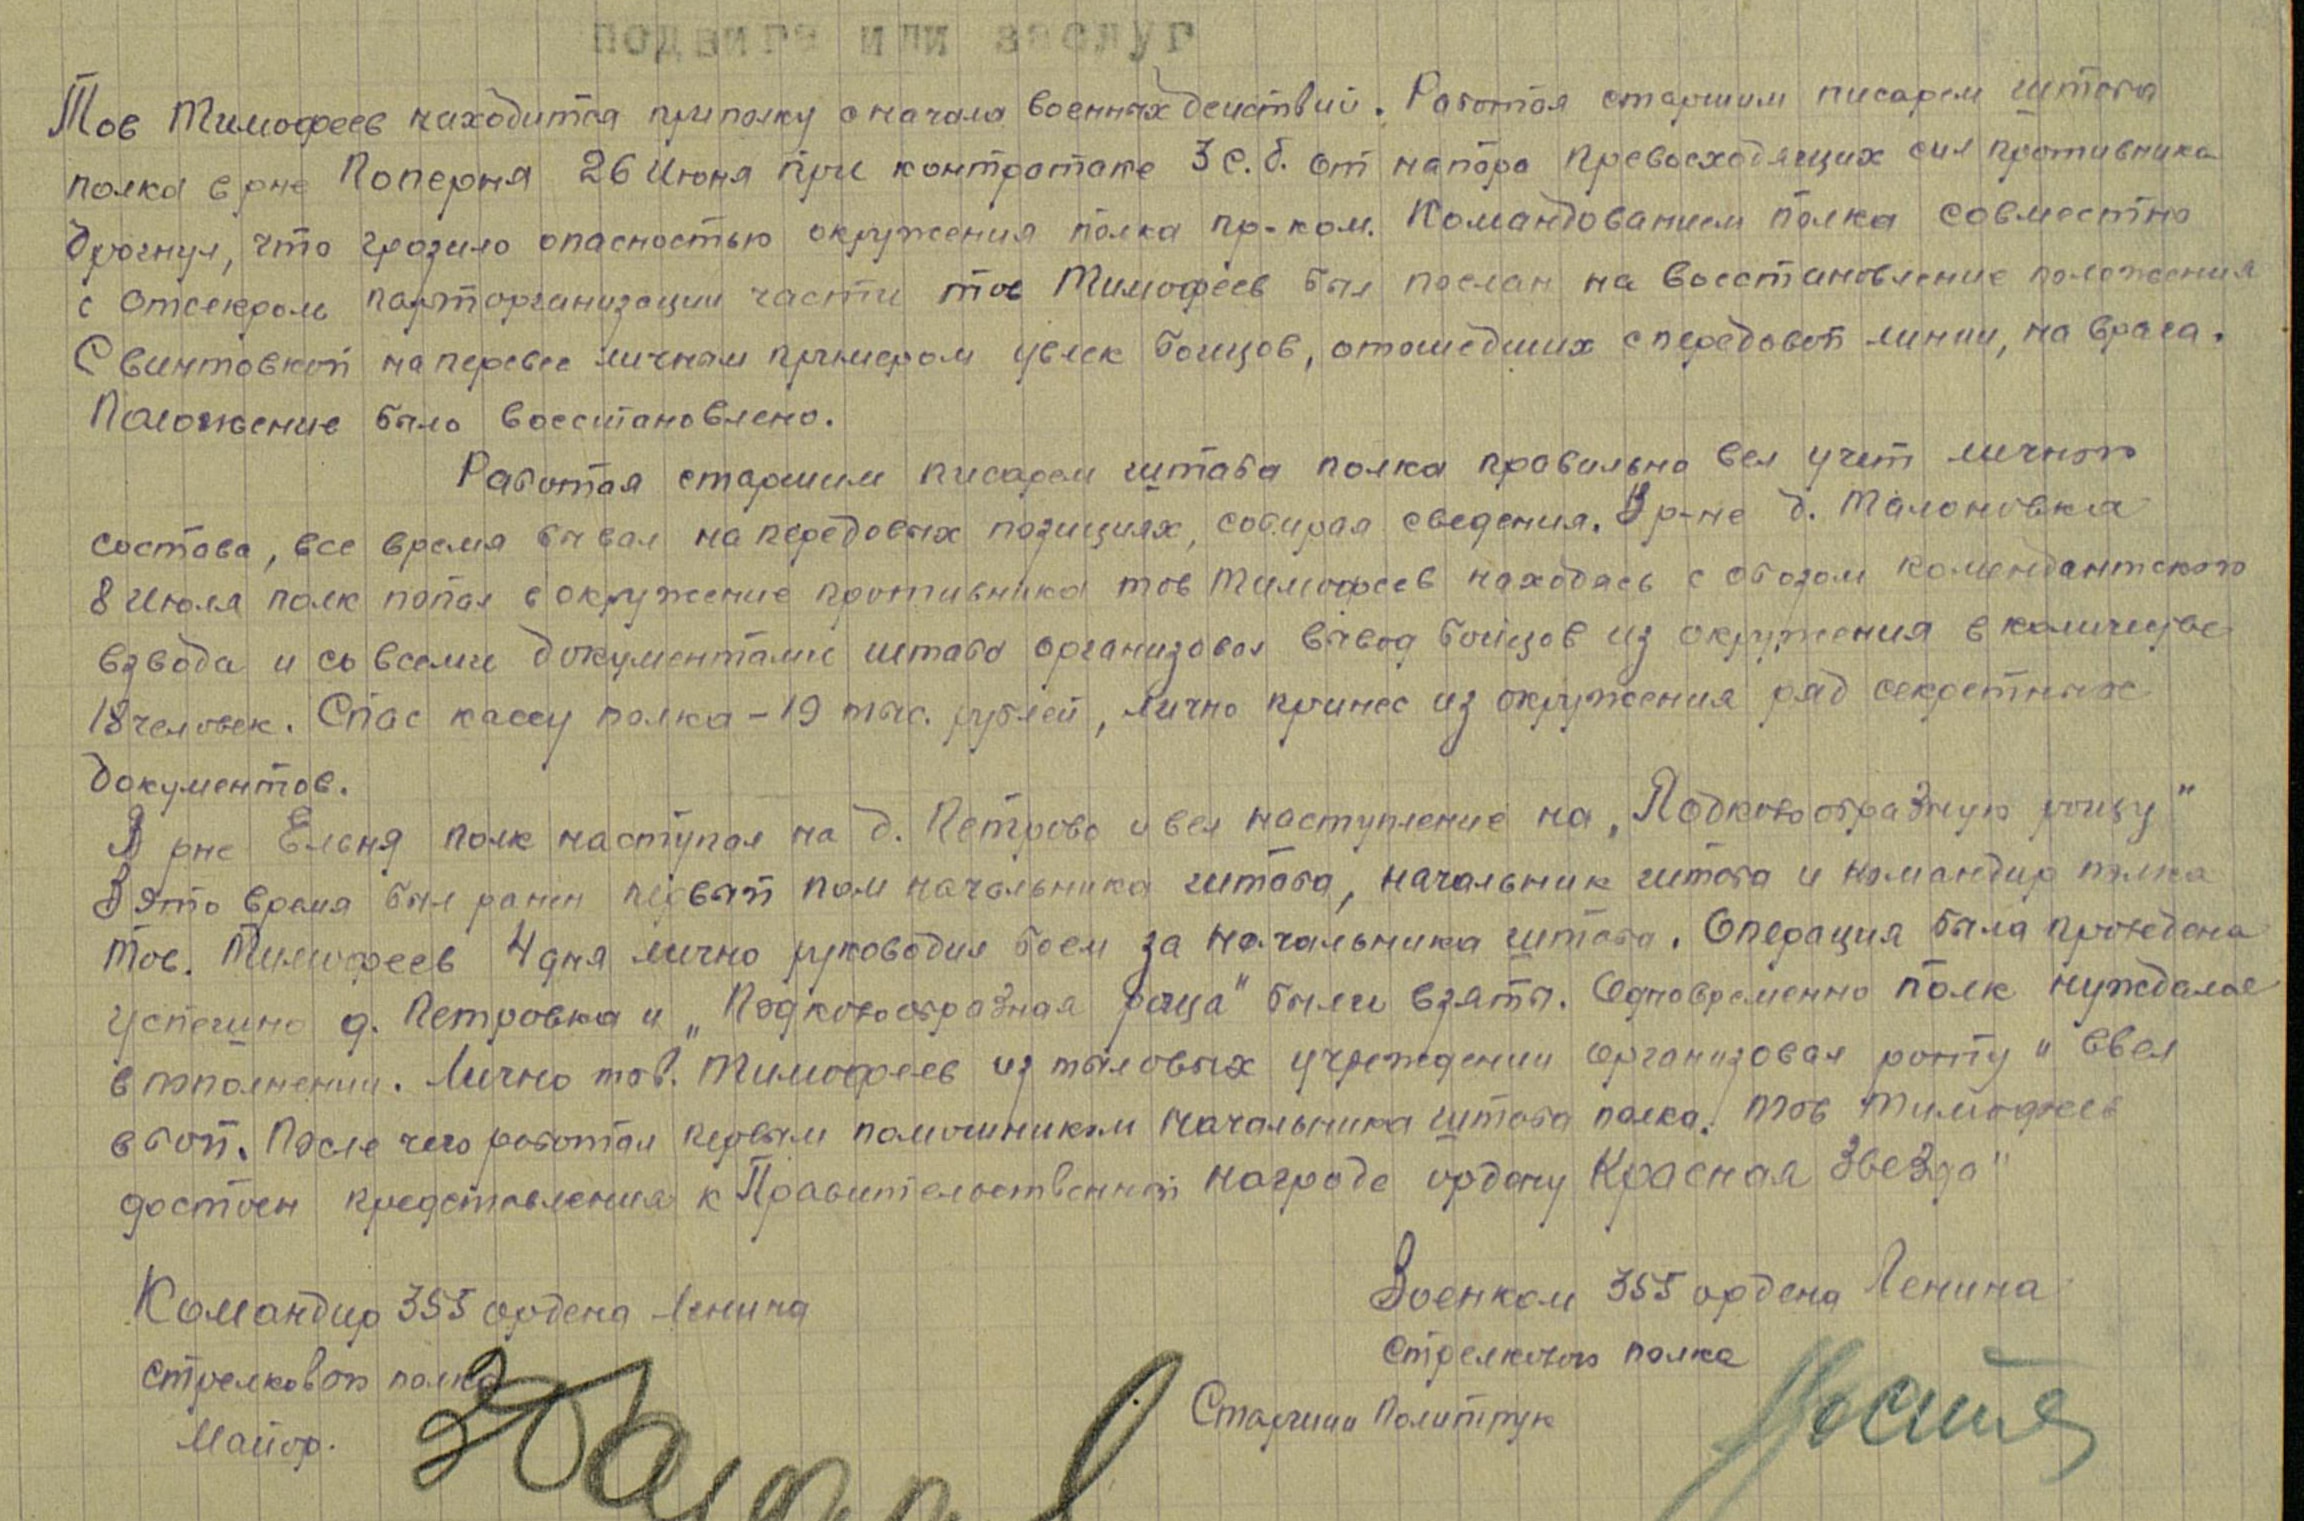 подвига или заслуг
Тов Тимофеев находится при полку с начала военных действий. Работая старшим писарем штаба
полка в рне Поперня 26 Июня при контратаке 3 с.б. от напора превосходящих сил противника
дрогнул, что грозило опасностью окружения полка пр-ком. Командованием полка совместно
с отсекром парторганизации части тов Тимофеев был послан на восстановление положения
С винтовкой на перевес личным примером увлек бойцов, отошедших с передовой линии, на врага.
Положение было восстановлено.
Работая старшим писарем штаба полка правильно вел учет личного
состава, все время бывал на передовых позициях, собирая сведения. В р-не д. Малоновка
8 Июля полк попал в окружение противника тов Тимофеев находясь с обозом комендантского
взвода и со всеми документами штаба организовал вывод бойцов из окружения в количестве
18 человек. Спас кассу полка - 19 тыс. рублей, лично принес из окружения ряд секретных
документов.
В рне Ельня полк наступал на д. Петрово и вел наступление на „Подковообразную рощу"
В это время был ранен первый пом начальника штаба, начальник штаба и командир полка
Тов. Тимофеев 4 дня лично руководил боем за начальника штаба. Операция была проведена
успешно д. Петровка и „Подковообразная роща" были взяты. Одновременно полк нуждался
в пополнении. Лично тов. Тимофеев из тыловых учреждении организовал роту и ввел
в бой. После чего работал первым помошником начальника штаба полка. Тов Тимофеев
достоен представления к Правительственной награде ордену Красная Звезда"
Командир 355 ордена Ленина
стрелковой полка
Майор.
Военком 355 ордена Ленина
стрелкового полка
Старший Политрук